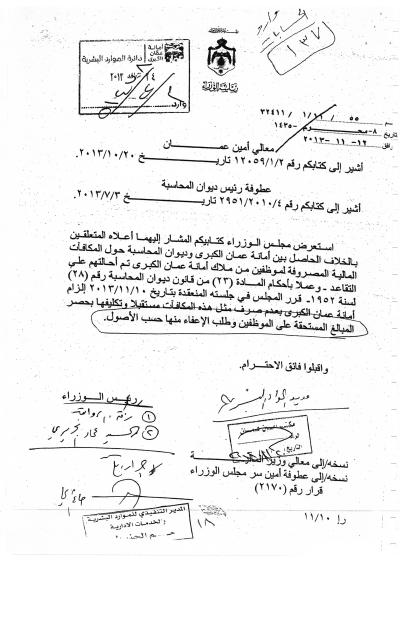 ١٣٧
أمانة عمان الكبرى
دائرة الموارد البشرية
وارد
٥٥ /١١/١ /٣٢٤١١
٨-محرم-١٤٣٥
١٢-١١-٢٠١٣
معالي أمين عمـــــان
أشير إلى كتابكم رقم ١٢٠٥٩/١/٢ تاريــــخ ٢٠١٣/١٠/٢٠.
عطوفة رئيس ديوان المحاسبة
أشير إلى كتابكم رقم ٢٩٥١/٢٠١٠/٤ تاريــــخ ٢٠١٣/٧/٣.
استعرض مجلس الوزراء كتابيكم المشار إليهما أعلاه المتعلقين
بالخلاف الحاصل بين أمانة عمان الكبرى وديوان المحاسبة حول المكافآت
المالية المصروفة لموظفين من ملاك أمانة عمان الكبرى تم أحالتهم على
التقاعد - وعملا بأحكام المـــادة (٢٣) من قانون ديوان المحاسبة رقم (٢٨)
لسنة ١٩٥٢- قرر المجلس في جلسته المنعقدة بتاريخ ٢٠١٣/١١/١٠ إلزام
أمانة عمان الكبرى بعدم صرف مثل هذه المكافآت مستقبلا وتكليفها بحصر
المبالغ المستحقة على الموظفين وطلب الإعفاء منها حسب الأصول.
واقبلوا فائق الاحترام.
رئيس الـــوزراء
مدير الموارد البشرية
١
٢
نسخه/إلى معالي وزير الماليـــة
نسخه/إلى عطوفة أمين سر مجلس الوزراء
قرار رقم (٢١٧٠)
المدير التنفيذي للموارد البشرية
والخدمات الادارية
١٨
را ١١/١٠